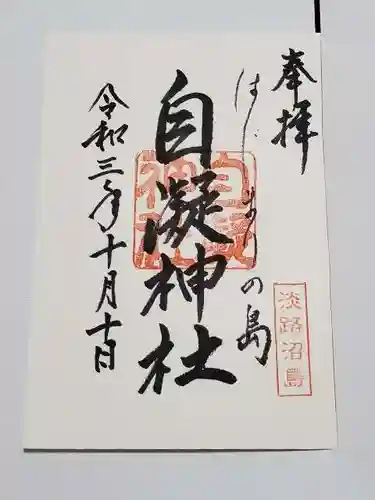 奉拝
はじまりの島
自凝神社
令和三年十月十日
淡路沼島